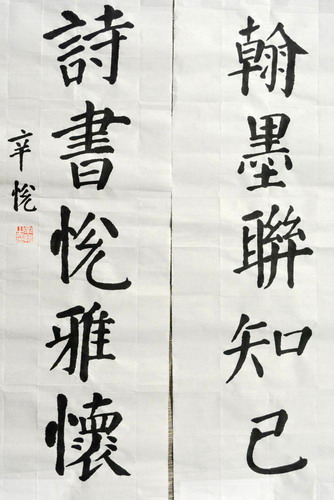 翰墨聯知己
詩書悦雅懷
辛悦